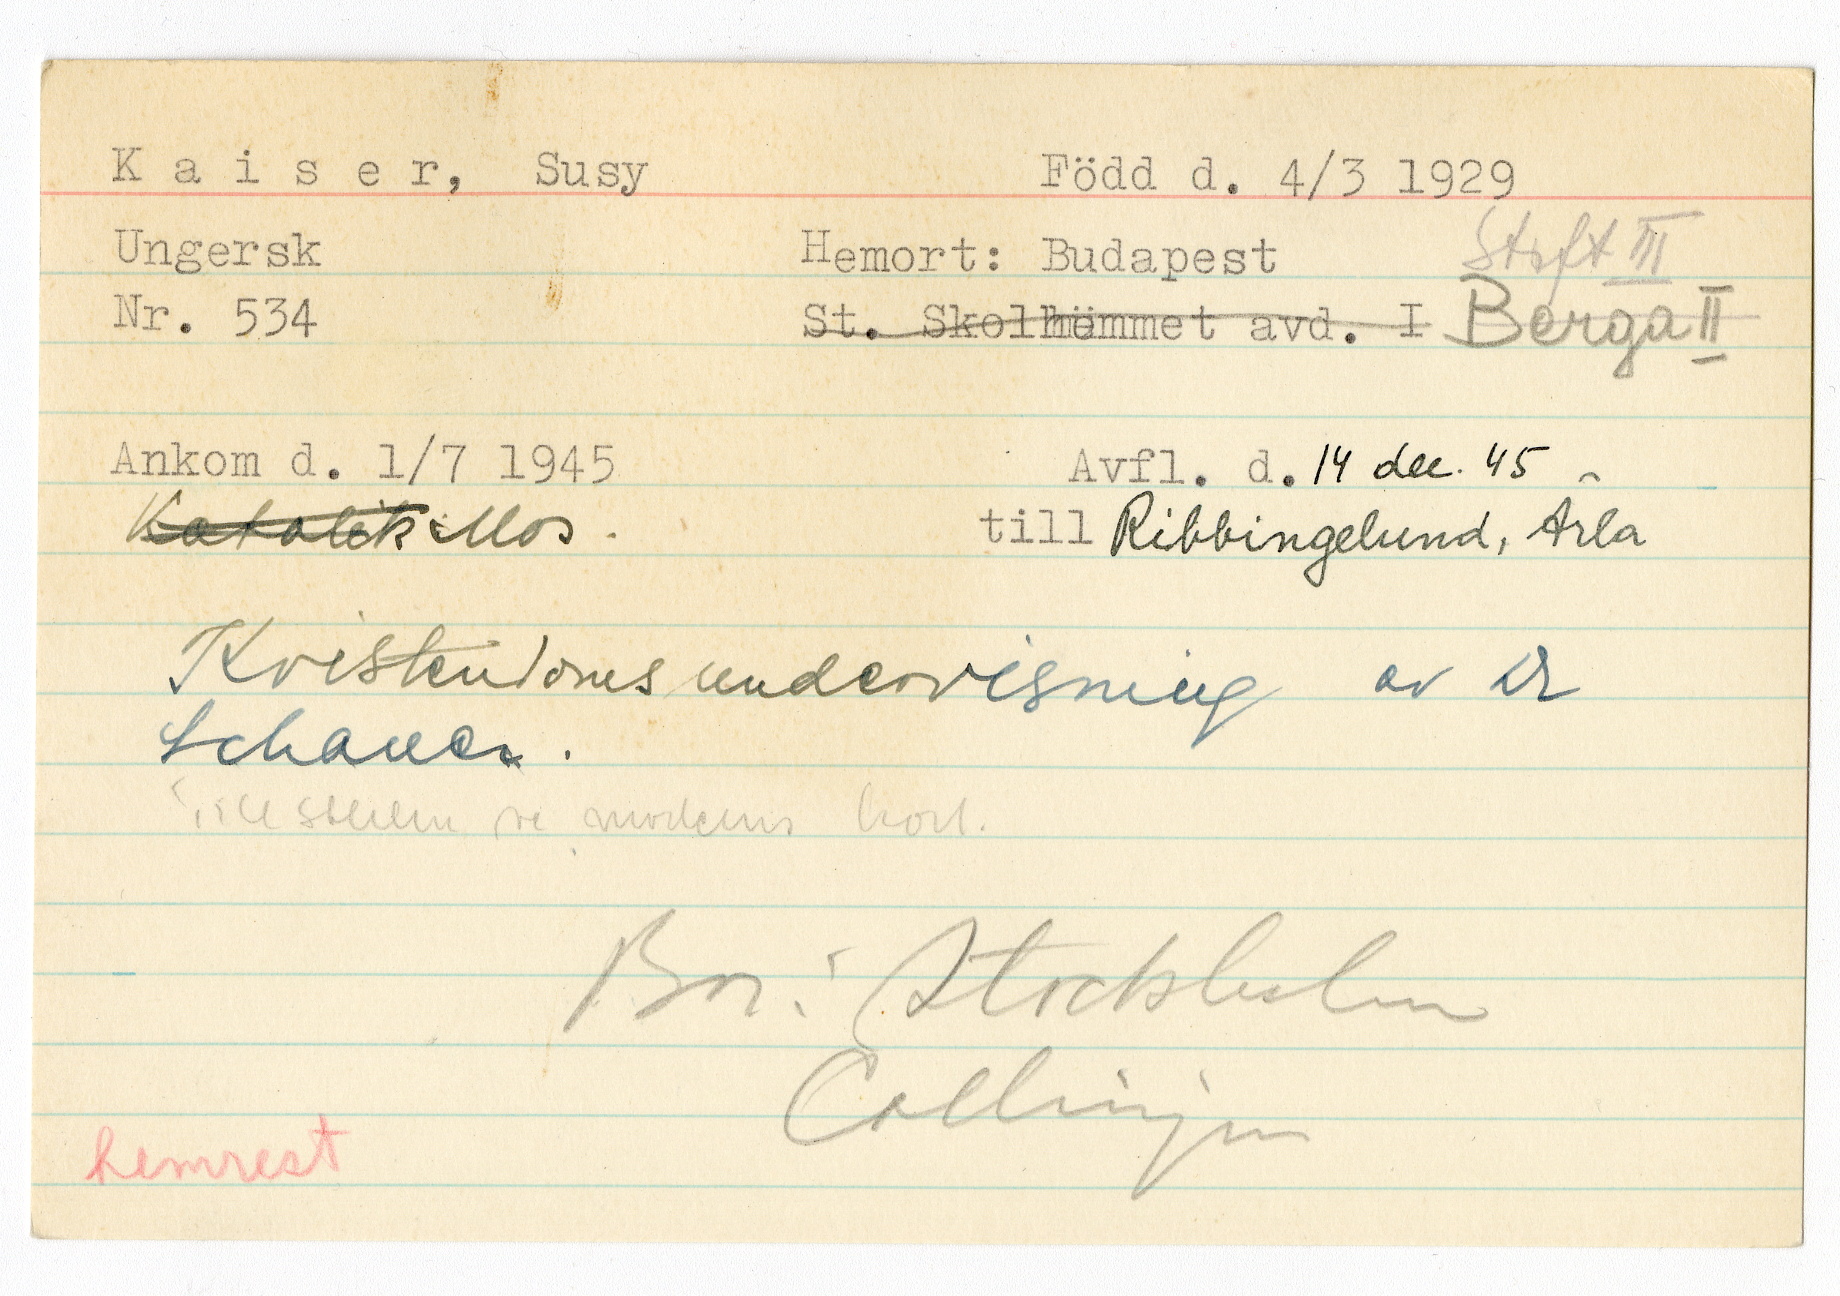 Kaiser, Susy Född d. 4/3 1929
Ungersk Hemort: Budapest Stoft III
Nr. 534 St. Skolhemmet avd. I Berga II
Ankom d. 1/7 1945 Avfl. d. 14 dec. 45
Katolik Mos. till Ribbingelund, Ärla
Kristendomsundervisning av Dr
Schauer.
se moderns kort.
Bor i Stockholm
hemrest